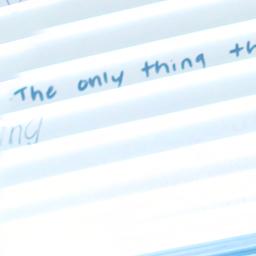 The only thing th
ng